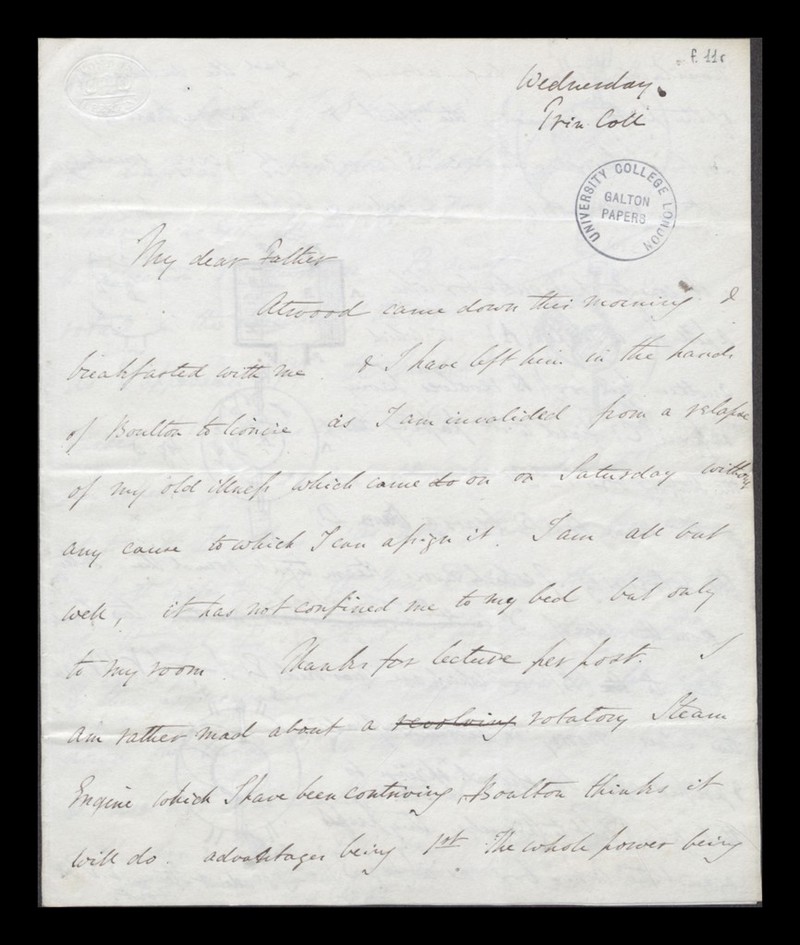 f. 11r
Wednesday.
Trin Coll
UNIVERSITY COLLEGE LONDON
GALTON
PAPERS
My dear Father
Atwood came down this morning &
breakfasted with me. & I have left him in the hands
of Boulton to lionize as I am invalided from a relapse
of my old illness which came to on on Saturday without
any cause to which I can assign it. I am all but
well, it has not confined me to my bed but only
to my room. Thanks for lecture per post. I
am rather mad about a revolving rotatory Steam
Engine which I have been contriving, Boulton thinks it
will do. advantages being 1st The whole power being